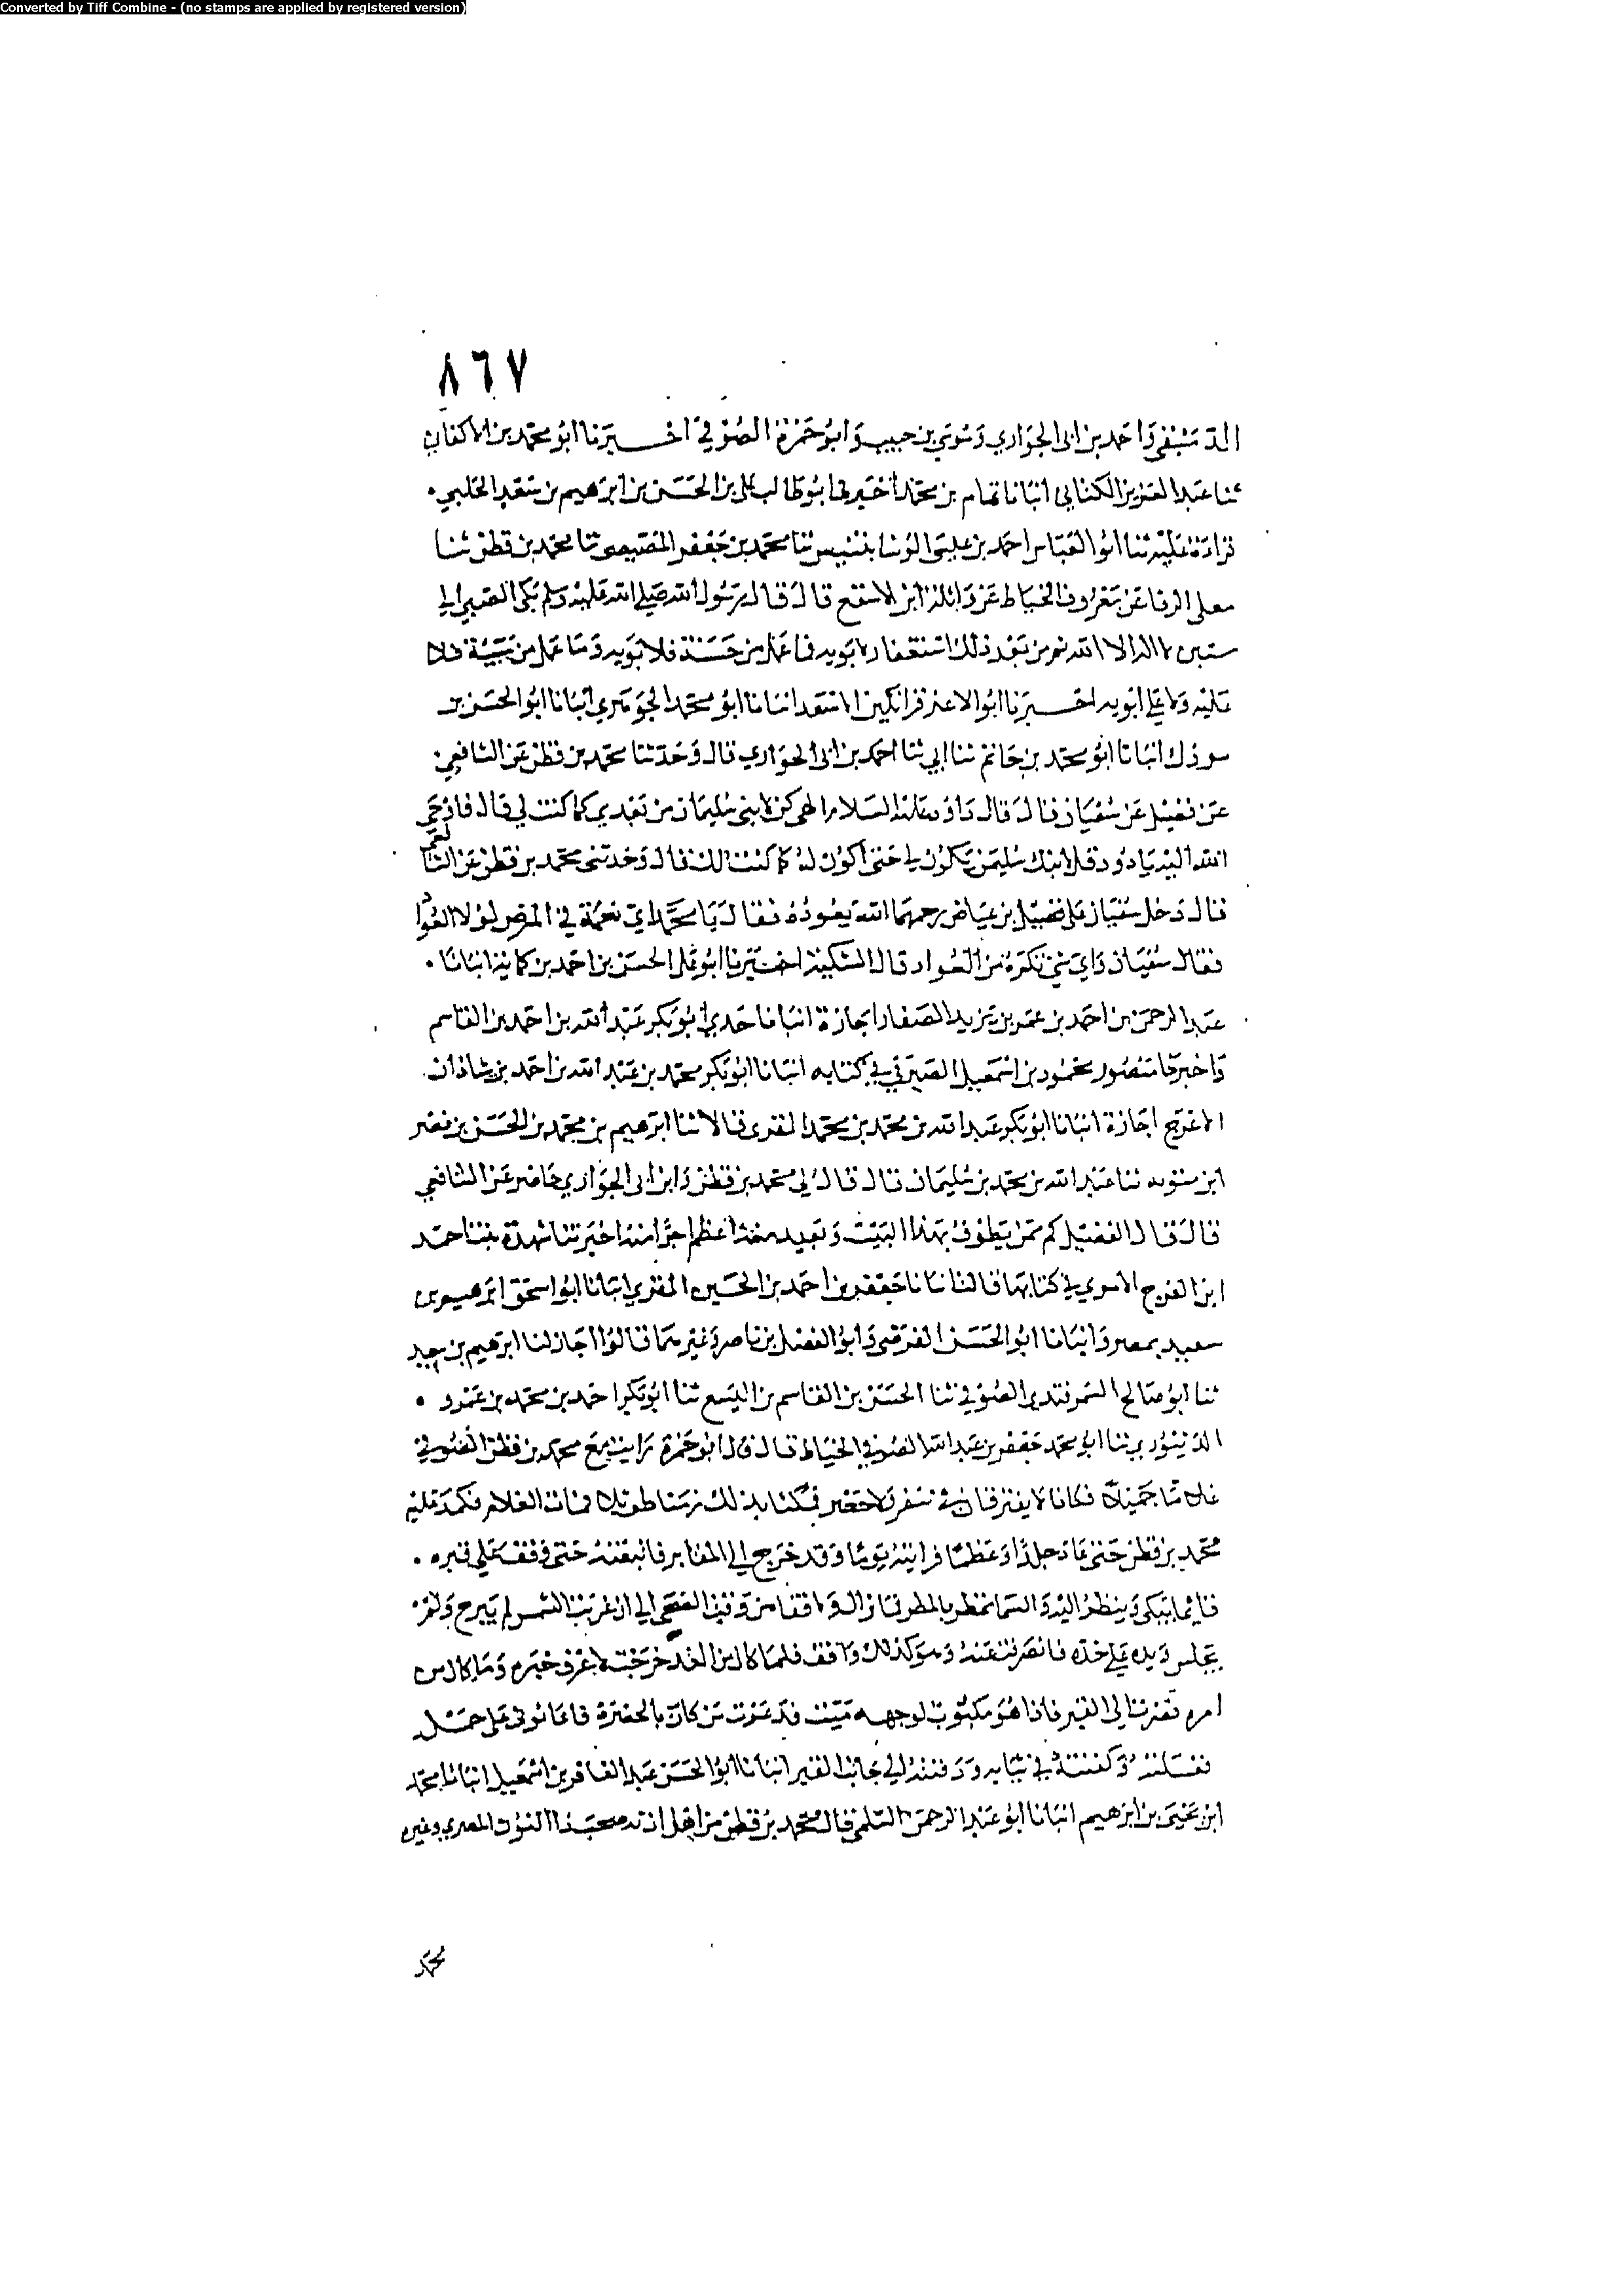 Converted by Tiff Combine - (no stamps are applied by registered version)
٨٦٧
الدمشقي واحمد بن ابي الحواري وموسى بن حبيب وابو حمزة الصوفي اخبرنا ابو محمد بن الاكفاني
ثنا عبد العزيز الكتاني انبانا تمام بن محمد اخبرني ابو طالب علي بن الحسن بن ابرهيم بن سعد الحلبي
قراءة عليه ثنا ابو العباس احمد بن عيسى الوشا بتنيس ثنا محمد بن جعفر المصيصي ثنا محمد بن قطن ثنا
معلى الرفا عن معروف الخياط عن واثلة ابن الاسقع قال قال رسول الله صلى الله عليه وسلم بكى الصبي الى
سنتين لا اله الا الله ثم من بعد ذلك استغفار لابويه فما عمل من حسنة فلابويه وما عمل من سيئة فلا
عليه ولا على ابويه اخبرنا ابو الاعز قراتكين بن الاسعد انبانا ابو محمد الجوهري انبانا ابو الحسن بن
مردك انبانا ابو محمد بن حاتم ثنا ابي ثنا احمد بن ابي الحواري قال وحدثنا محمد بن قطن عن الشافعي
عن فضيل عن سفيان قال قال داود عليه السلام الهي كن لابني سليمان من بعدي كما كنت لي قال فاوحى
الله اليه يا داود قل لابنك سليمن يكون لي حتى اكون له كما كنت لك قال وحدثني محمد بن قطن عن الشافعي
قال دخل سفيان على فضيل بن عياض رحمهما الله يعوده فقال يا محمد اي نعمة في المرض لولا العواد
فقال سفيان واي شي تكره من العواد قال الشكية اخبرنا ابو علي الحسن بن احمد في كتابه انبانا
عبد الرحمن بن احمد بن عمر بن يزيد الصفار اجازة انبانا جدي ابو بكر عبد الله بن احمد بن القاسم
واخبرنا منصور محمود بن اسمعيل الصيرفي في كتابه انبانا ابو بكر محمد بن عبد الله بن احمد بن شاذان
الاعرج اجازة انبانا ابو بكر عبد الله بن محمد بن محمد المقرى قالا ثنا ابرهيم بن محمد بن الحسن بن نصر
ابن متويه ثنا عبد الله بن محمد بن سليمان قال قال لي محمد بن قطن وابن ابي الحواري حاضر عن الشافعي
قال قال الفضيل كم ممن يطوف بهذا البيت وبعيد منه اعظم اجرا منه اخبرتنا شهدة بنت احمد
ابن الفرج الابري في كتابها قالت انبانا جعفر بن احمد بن الحسين المقري انبانا ابو اسحق ابرهيم بن
سعيد بمصر وانبانا ابو الحسن الفرضي وابو الفضل بن ناصر وغيرهما قالوا اجاز لنا ابرهيم بن سعيد
ثنا ابو صالح السمرقندي الصوفي ثنا الحسن بن القاسم بن اليسع ثنا ابو بكر احمد بن محمد بن عمرو
الدينوري ثنا ابو محمد جعفر بن عبد الله الصوفي الخياط قال قال ابو حمزة رايت مع محمد بن قطن الصوفي
غلاما جميلا فكانا لا يفترقان في سفر ولا حضر فمكثا بذلك زمنا طويلا فمات الغلام فكمد عليه
محمد بن قطن حتى عاد جلدا وعظما فرايته يوما وقد خرج الى المقابر فاتبعته حتى وقف على قبره
قايما يبكي وينظر اليه والسما تمطر بالمطر فما زال واقفا من وقت الضحى الى ان غربت الشمس لم يبرح ولم
يجلس ويده على خده فانصرفت عنه وهو كذلك واقف فلما كان من الغد خرجت لاعرف خبره وما كان من
امره فصرت الى القبر فاذا هو مكبوب لوجهه ميت فدعوت من كان بالحضرة فاعانوني على حمله
فغسلته وكفنته في ثيابه ودفنته الى جانب القبر انبانا ابو الحسن عبد الغافر بن اسمعيل انبانا محمد
ابن يحيى بن ابرهيم انبانا ابو عبد الرحمن السلمي قال محمد بن قطن من اهل اذنه صحب ذا النون المصري وغيره
محمد